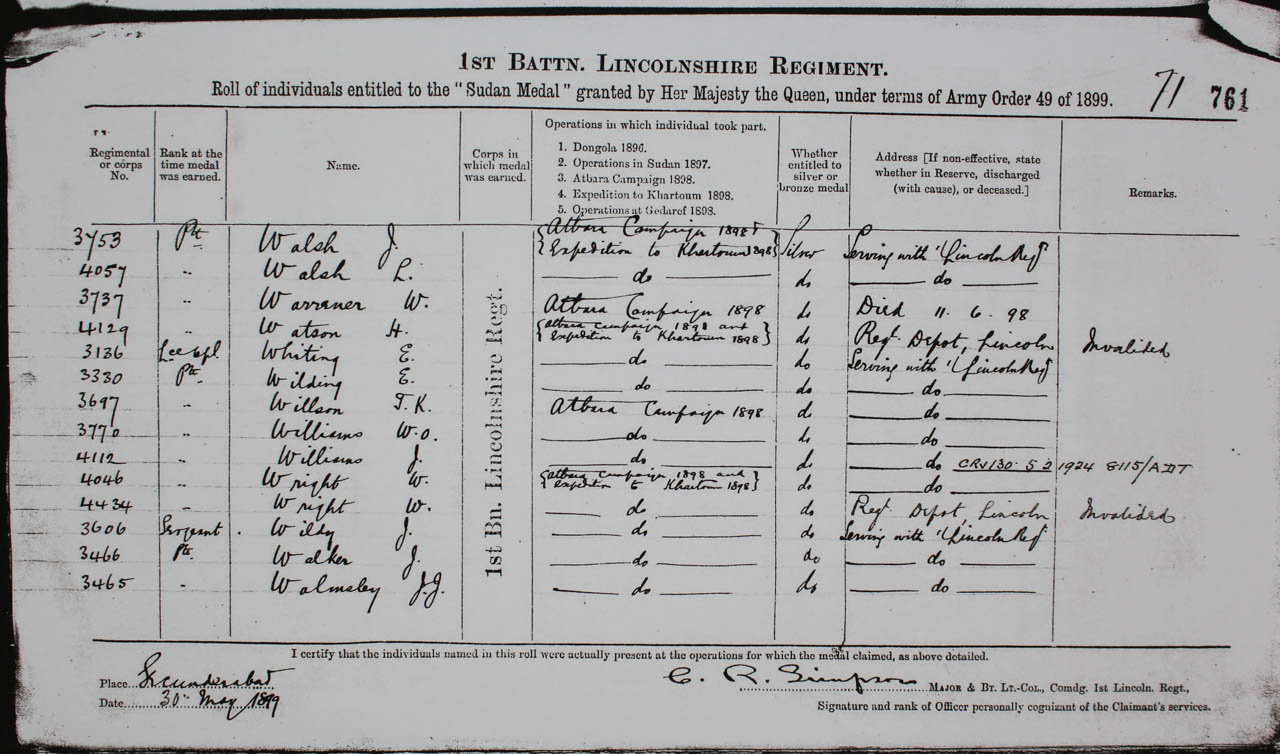 1ST BATTN. LINCOLNSHIRE REGIMENT.
Roll of individuals entitled to the "Sudan Medal" granted by Her Majesty the Queen, under terms of Army Order 49 of 1899. 71 761
Regimental or corps No.
Rank at the time medal was earned.
Name.
Corps in which medal was earned.
Operations in which individual took part.
1. Dongola 1896.
2. Operations in Sudan 1897.
3. Atbara Campaign 1898.
4. Expedition to Khartoum 1898.
5. Operations at Gedaref 1898.
Whether entitled to silver or bronze medal
Address [If non-effective, state whether in Reserve, discharged (with cause), or deceased.]
Remarks.
1st Bn. Lincolnshire Regt.
3753 Pte. Walsh J. { Atbara Campaign 1898 & Expedition to Khartoum 1898 } Silver Serving with 1/Lincoln Regt
4057 " Walsh L. do do do
3737 " Warrener W. Atbara Campaign 1898 do Died 11. 6. 98
4129 " Watson H. { Atbara Campaign 1898 and Expedition to Khartoum 1898 } do Regt. Depot, Lincoln Invalided
3136 Lce Cpl. Whiting E. do do Serving with 1/Lincoln Regt
3330 Pte. Wilding E. do do do
3697 " Willson T.K. Atbara Campaign 1898 do do
3770 " Williams W.O. do do do
4112 " Williams J. do do do CRV130.52 1924 8115/ADT
4046 " Wright W. { Atbara Campaign 1898 and Expedition to Khartoum 1898 } do do
4434 " Wright W. do do Regt. Depot, Lincoln Invalided
3606 Sergeant . Wildy J. do do Serving with 1/Lincoln Regt
3466 Pte. Walker J. do do do
3465 " Walmsley J.J. do do do
I certify that the individuals named in this roll were actually present at the operations for which the medal claimed, as above detailed.
Place Secunderabad
Date 30th May 1899
C. R. Simpson MAJOR & BT. LT.-COL., Comdg. 1st Lincoln. Regt.,
Signature and rank of Officer personally cognizant of the Claimant's services.